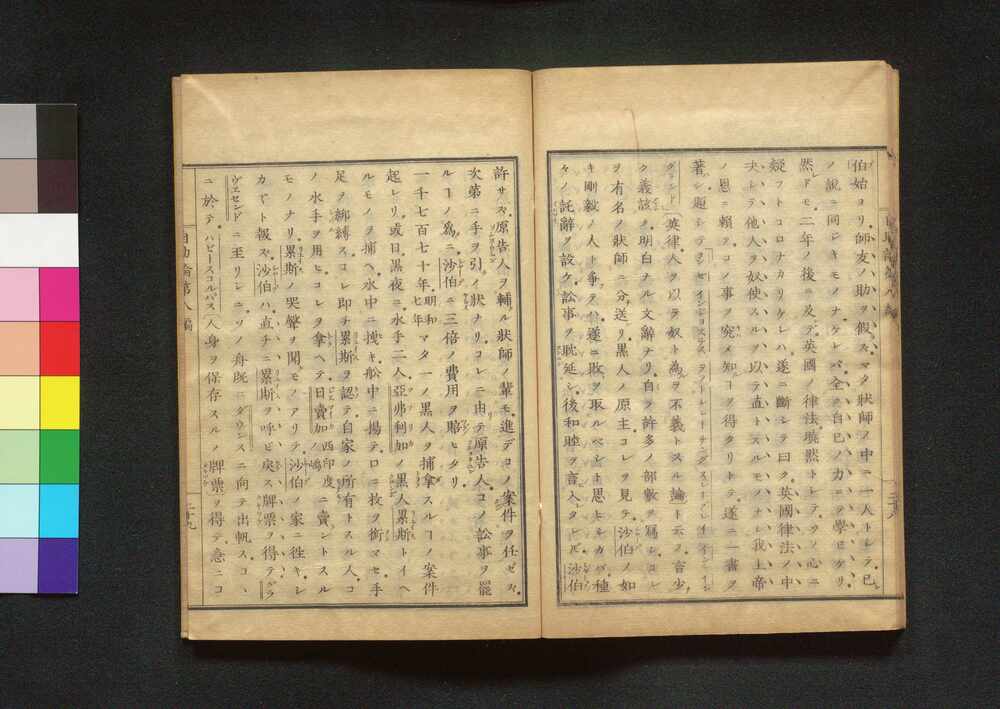 伯始ヨリ師友ノ助ヲ假ラス。マタ狀師ノ中ニ一人トシテ。己
ノ說ニ同シキモノナケレバ。全ク自己ノ力ニテ學ビケリ。
然レドモ。二年ノ後ニ及デ英國ノ律法。曉然トシテ。ソノ心ニ
疑フトコロナカリケレハ遂ニ斷シテ曰ク。英國律法ノ中
決シテ他人ヲ奴使スルヲ以テ直トスルモノハナシ我上帝
ノ恩ニ賴テコノ事ヲ究メ知ルヲ得タリトテ。遂ニ一書ヲ
著シ。題シテ
英律。人ヲ以テ奴ト爲ヲ不義トスル論ト云フ。言少
ク義該子。明白ナル文辭ナリ。自ラ許多ノ部數ヲ寫シ。コレ
ヲ有名ノ狀師ニ分送リ。黑人ノ原主コレヲ見テ。沙伯ノ如
キ剛毅ノ人ト爭ヲハ。遂ニ敗ヲ取ルベシト思ヒシカバ。種
々ノ託辭ヲ設ケ。訟事ヲ耽延シ。後和睦ヲ言入タレドモ沙伯
許サス。原告人ヲ輔ル狀師ノ輩モ。進デコノ案件ヲ任ゼス。
次第ニ手ヲ引ノ狀ナリ。コレニ由テ原告人。コノ訟事ヲ罷
ルノ爲ニ沙伯ニ三倍ノ費用ヲ賠ヒタリ。
一千七百七十年明和七年マタ一ノ黑人ヲ捕拿スルノ案件
起レリ。或日黑夜ニ水手二人亞弗利加ノ黑人累斯トイヘ
ルモノヲ捕ヘ水中ニ拽キ船中ニ揚テ口ニ枚ヲ銜マセ手
足ヲ綁縛ス。コレ即チ累斯ヲ認テ自家ノ所有トスル人。コ
ノ水手ヲ用ヒコレヲ拿ヘテ日賣加西印度ノ嶋ニ賣ントスル
モノナリ。累斯ノ哭聲ヲ聞モノアリテ。沙伯ノ家ニ往キ。シ
カ〲ト報ス。沙伯ハ。直チニ累斯ヲ呼ビ戾ス牌票ヲ得テ。グラ
ヴェセンドニ至リシニ。ソノ舟既ニダウンスニ向テ出帆ス。コヽ
ニ於テ。ハビースコルパス人身ヲ保存スルノ牌票ヲ得テ。急ニコ
自助論第八編
二十九